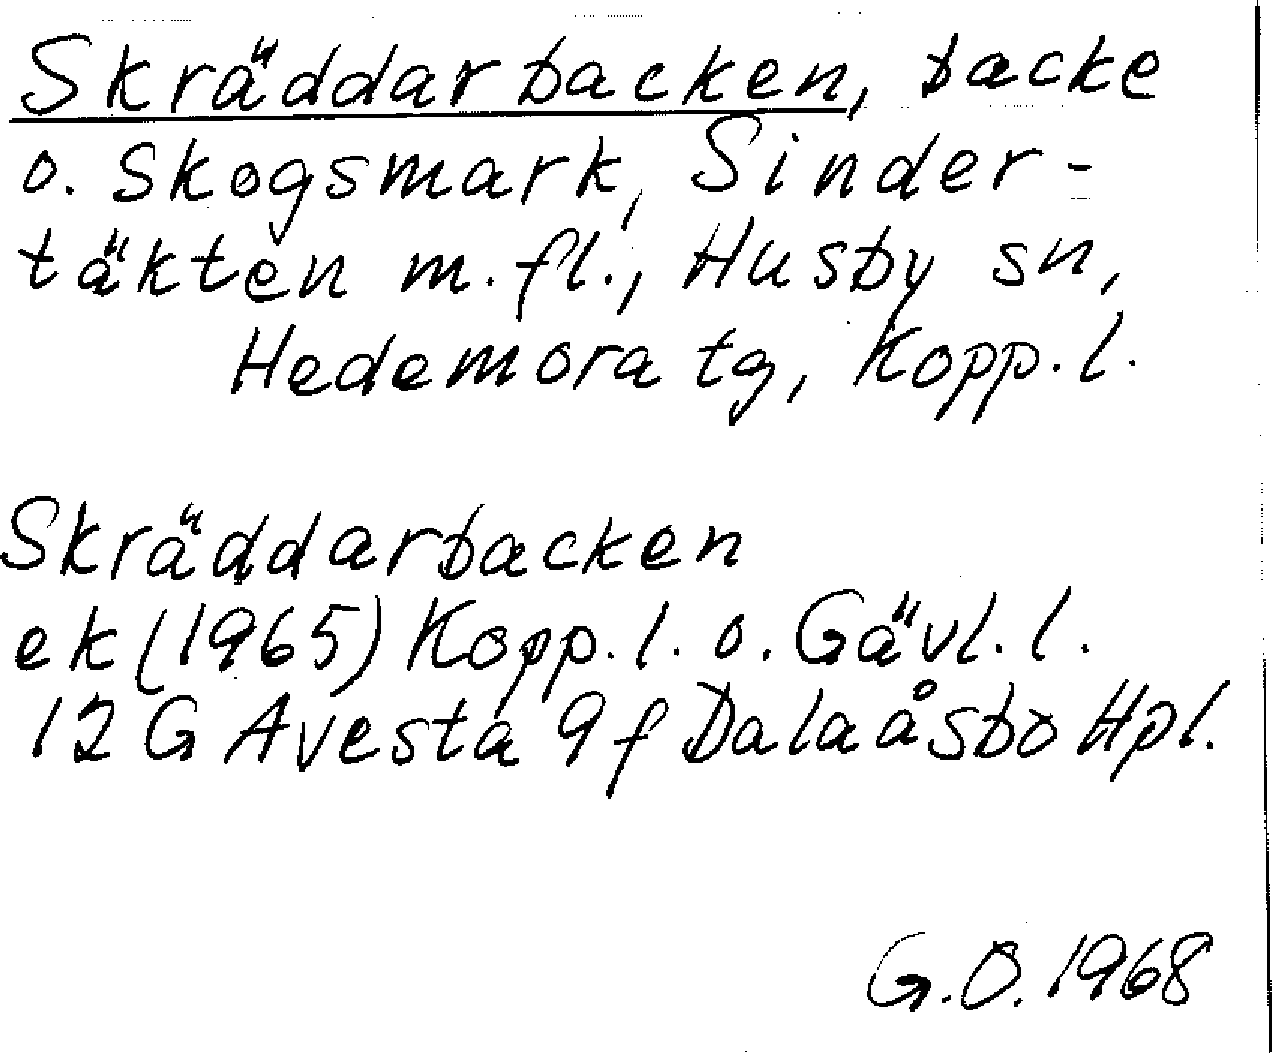 Skräddarbacken, backe
o. skogsmark, Sinder-
täkten m.fl., Husby sn,
Hedemora tg, Kopp.l.
Skräddarbacken
ek (1965) Kopp.l. o. Gävl.l.
12 G Avesta 9 f Dalaåsbo Hpl.
G.O. 1968